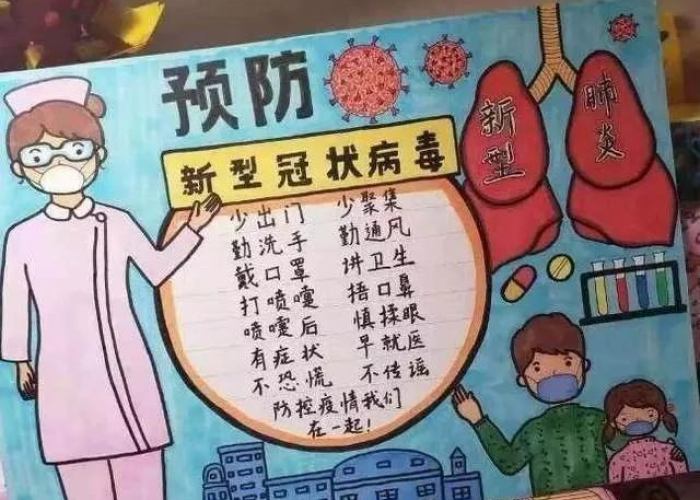 预防
新型冠状病毒
新型
肺炎
少出门 少聚集
勤洗手 勤通风
戴口罩 讲卫生
打喷嚏 捂口鼻
喷嚏后 慎揉眼
有症状 早就医
不恐慌 不传谣
防控疫情我们
在一起!